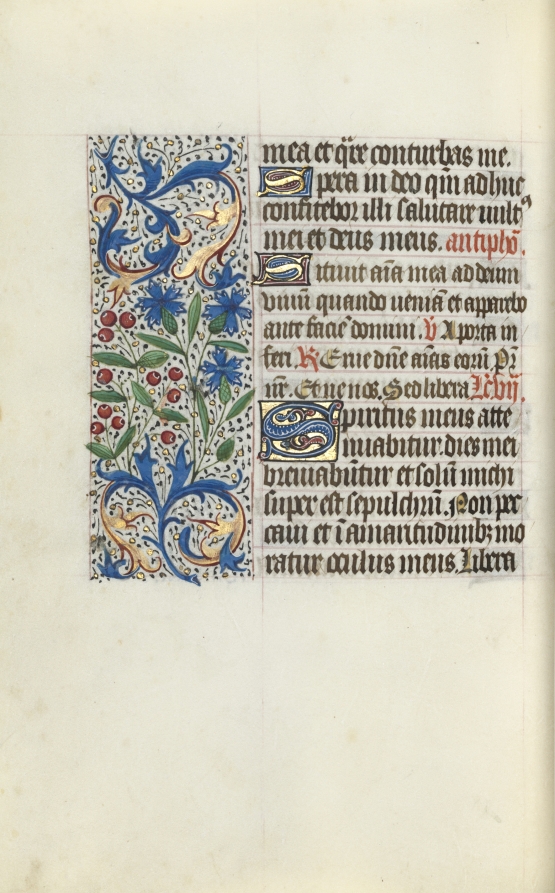 mea et q̄re conturbas me.
Spera in deo qm̄ adhuc
confitebor illi salutare vult⁹
mei et deus meus. antiphō.
Sitiuit aīa mea ad deum
viuū quando ueniā et apparebo
ante facie domini. v̄ A porta in
feri. R̄ Erue dn̄e aīas eorū Pr̄
nr̄. Et ne nos. Sed libera Lc̄. vij
Spiritus meus atte
nuabitur. dies mei
breuiabūtur et solū michi
super est sepulchrū. Non pec
caui et ī amaritudinibꝫ mo
ratur oculus meus. Libera